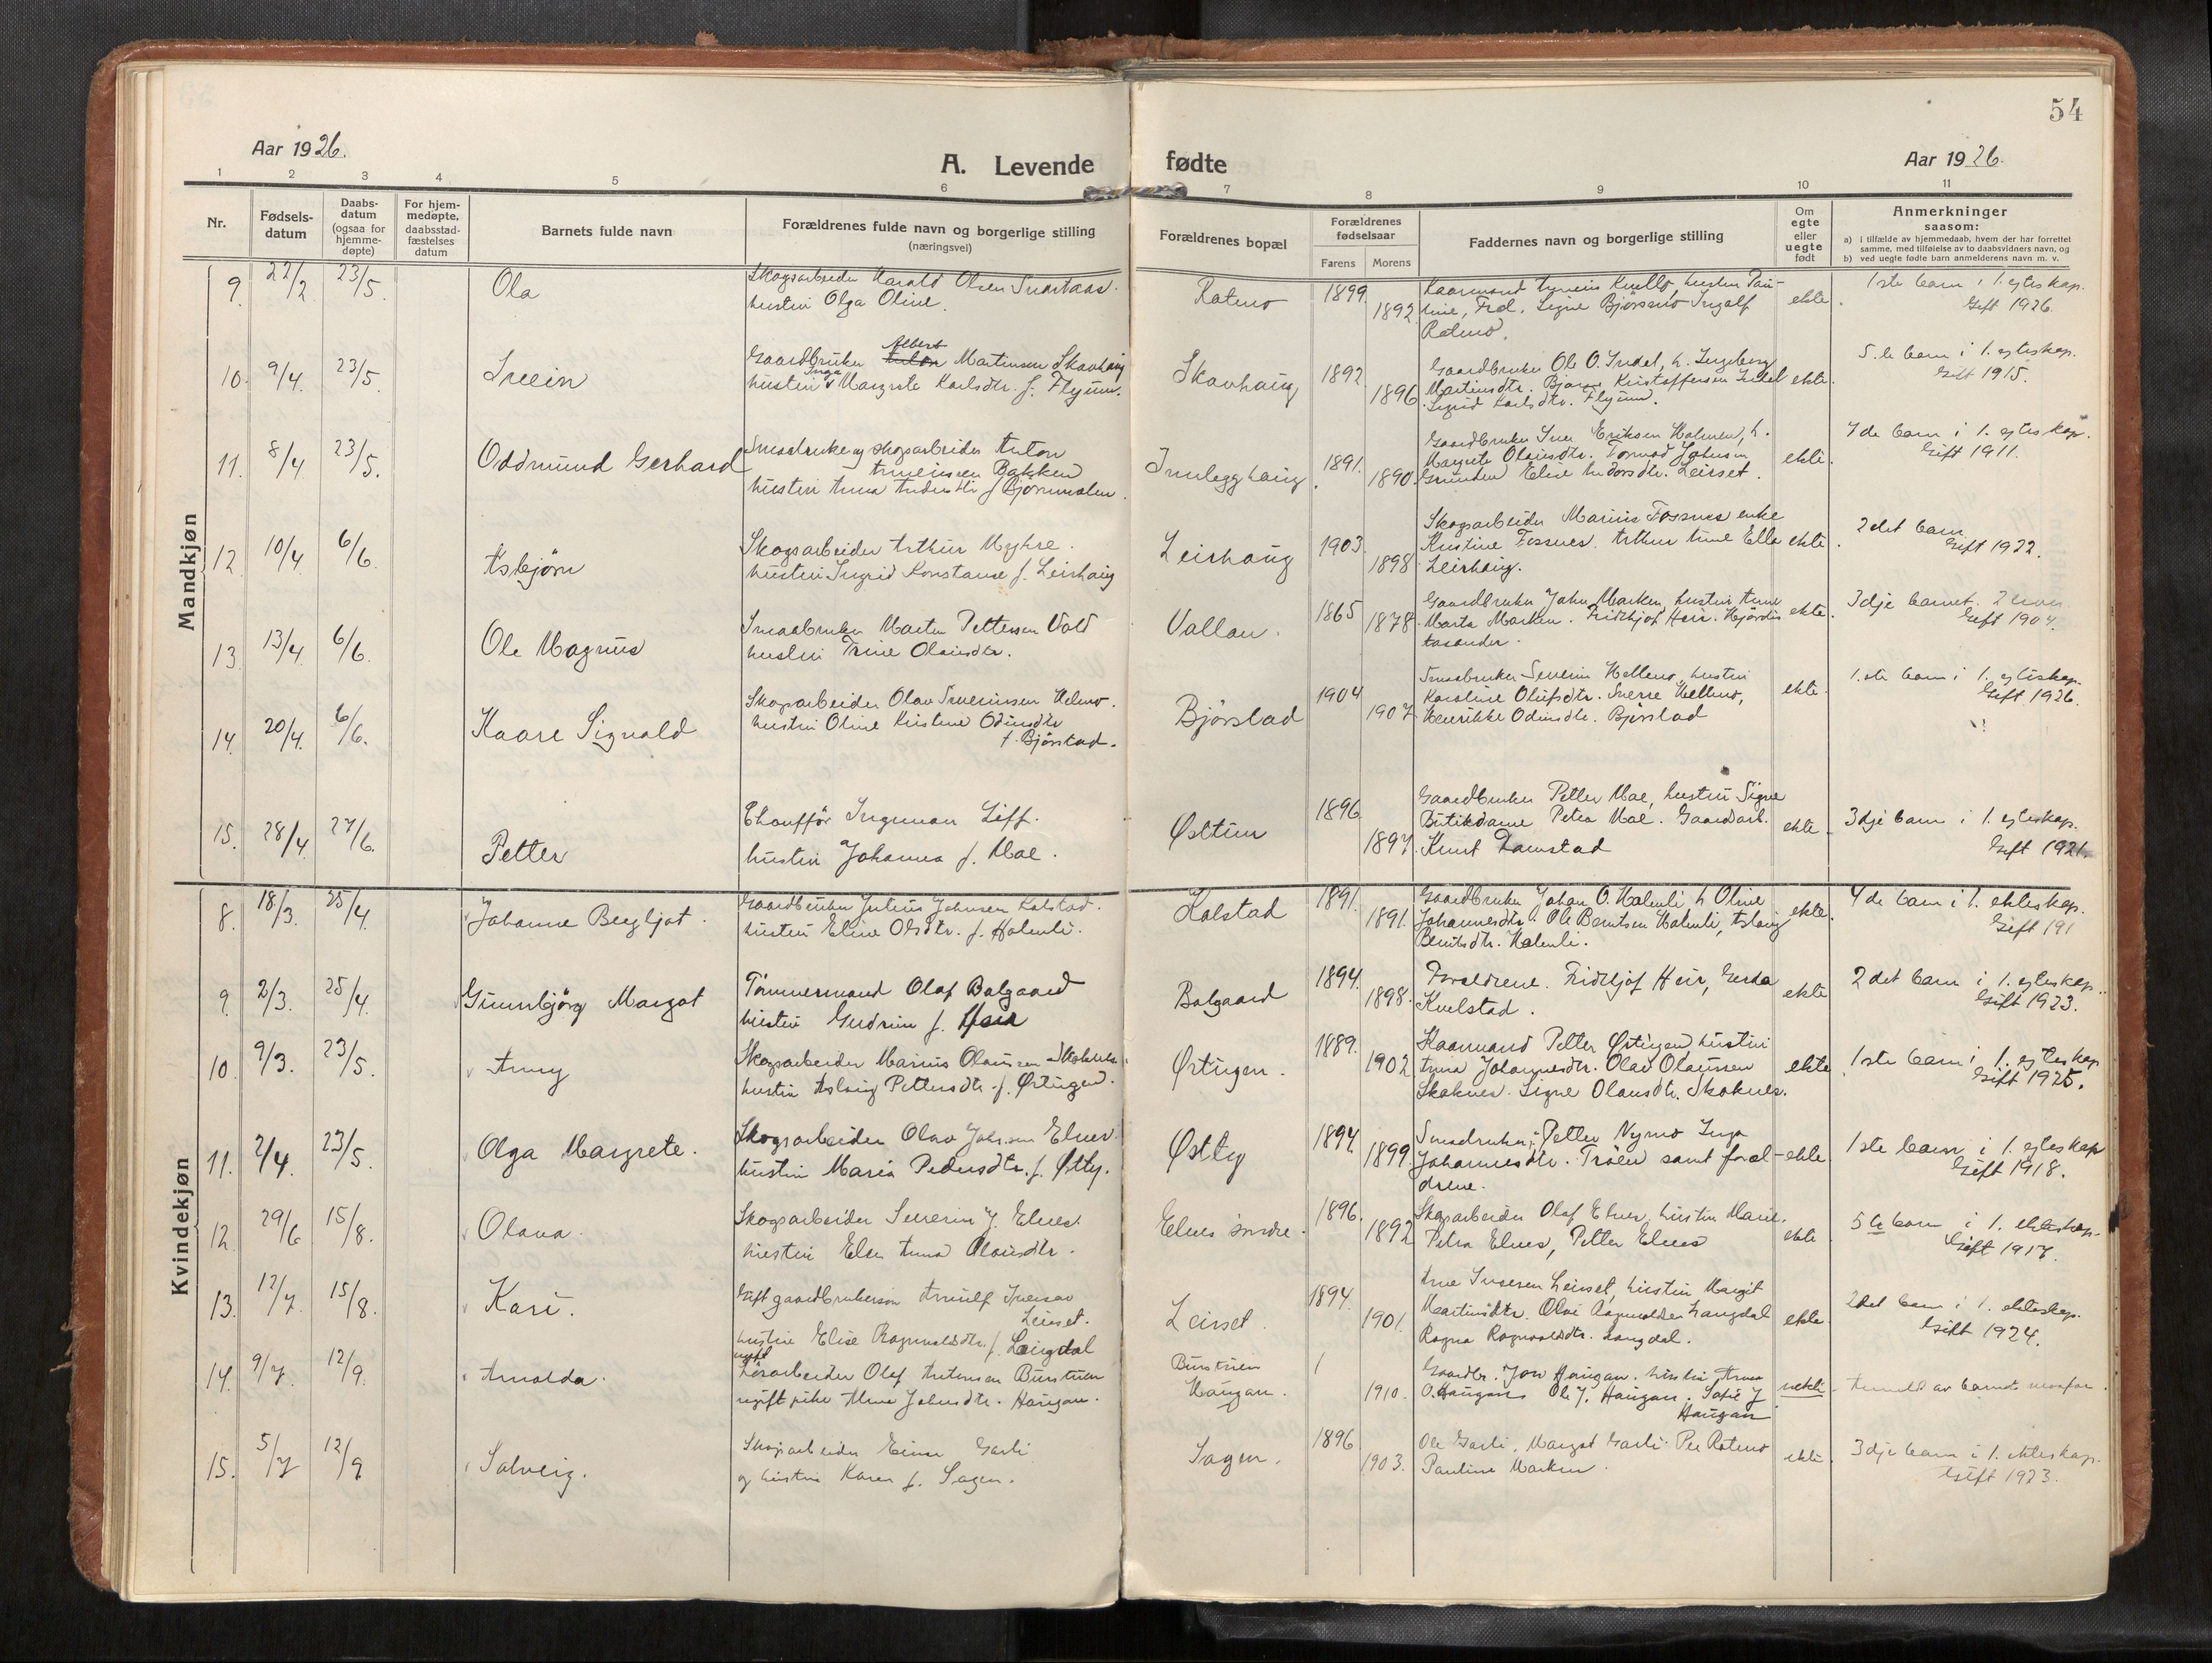 54
Aar 1926.
A. Levende fødte
Aar 1926.
1 2 3 4 5 6 7 8 9 10 11
Nr.
Fødsels-
datum
Daabs-
datum
(ogsaa for
hjemme-
døpte)
For hjem-
medøpte,
daabsstad-
fæstelses
datum
Barnets fulde navn
Forældrenes fulde navn og borgerlige stilling
(næringsvei)
Forældrenes bopæl
Forældrenes
fødselsaar
Farens Morens
Faddernes navn og borgerlige stilling
Om
egte
eller
uegte
født
Anmerkninger
saasom:
a) i tilfælde av hjemmedaab, hvem der har forrettet
samme, med tilføielse av to daabsvidners navn, og
b) ved uegte fødte barn anmelderens navn m. v.
Mandkjøn
9. 22/2 23/5. Ola
Skogsarbeider Harald Olsen
hustru Olga Oline.
Ratmo 1899. 1892.
hustru Pau-
line, Frøl. Signe Bjørsmo Ingolf
Ratmo.
ekte.
1ste barn i 1. egteskap.
Gift 1926.
10. 9/4. 23/5. Svein
Gaardbruker Albert Martinsen Skavhaug
hustru Inga Margrete Karlsdtr. f. Flyum.
Skavhaug 1892. 1896
Gaardbruker Ole O. Indal, h. Ingeborg
Martinsdtr. Bjarne Kristoffersen Indal
Sigrid Karlsdtr. Flyum.
ekte.
5.te barn i 1. egteskap.
Gift 1915.
11. 8/4 23/5. Oddmund Gerhard
Smaabruker og skogsarbeider Anton
Bakken
hustru Anna Andersdtr f Bjørnmolen.
Innlegghaug 1891. 1890.
Gaardbruker Iver Eriksen Holmen, h.
Margrete Olausdtr. Tormod Johnsen
Grunden Elise Leirset.
ekte.
4de barn i 1. egteskap.
Gift 1911.
12. 10/4 6/6. Asbjørn
Skogsarbeider Arthur Myhre.
hustru Ingrid Konstanse f. Leirhaug
Leirhaug 1903. 1898
Skogsarbeider Marius Fossnes enke
Kristine Fossnes. Arthur Ella
Leirhaug.
ekte.
2det barn
Gift 1922.
13. 13/4 6/6. Ole Magnus
Smaabruker Martin Pettersen Vold
hustru Trine Olausdtr.
Vollan. 1865 1878.
Gaardbruker John Marken, hustru Anne
Marta Marken. Fridthjof Heir. Hjørdis
ekte.
3dje barnet.
Gift 1904.
14. 20/4. 6/6. Kaare Signald
Skogsarbeider Olav Helmo.
hustru Oline Kristine Odinsdtr
f. Bjørstad.
Bjørstad 1904 1907.
Smaabruker Severin Helmo, hustru
Karoline Olufsdtr. Sverre Helmo,
Henrikke Odinsdtr. Bjørstad
ekte.
1.ste barn i 1. egteskap.
Gift 1926.
15. 28/4 27/6. Petter
Chauffør Ingeman Liff.
hustru Johanna f. Moe.
Østeun 1896. 1897.
Gaardbruker Petter Moe, hustru Signe
Butikdame Petra Moe. Gaardsarb.
Knut Damstad
ekte
3dje barn i 1. egteskap.
Gift 1921.
Kvindekjøn
8. 18/3. 25/4. Johanne Bergljot.
Gaardbruker Julius Johnsen Kolstad.
hustru Eline Olsdtr. f. Holmli.
Kolstad 1891. 1891.
Gaardbruker Johan O. Holmli h Oline
Johannesdtr. Ole Berntsen Holmli, Aslaug
Berntsdtr. Holmli.
ekte.
4de barn i 1. ekteskap.
Gift 191
9. 2/3. 25/4. Gunnbjørg Margot
Tømmermand Olaf Balgaard
hustru Gudrun f. Heir
Balgaard 1894. 1898.
Foreldrene. Fridthjof Heir, Gerda
Kvelstad.
ekte
2det barn i 1. egteskap.
Gift 1923.
10. 9/3. 23/5. Anny
Skogsarbeider Marius Olaussen Skaknes.
hustru Aslaug Pettersdtr. f. Ørtugen.
Ørtugen. 1889. 1902
Kaarmand Petter Ørtugen, hustru
Anna Johannesdtr. Olav Olaussen
Skaknes. Signe Olausdtr. Skaknes.
ekte
1ste barn i 1. egteskap
Gift 1925.
11. 2/4. 23/5. Olga Margrete.
Skogsarbeider Olav Johnsen Elnes
hustru Maria Pedersdtr. f. Østby.
Østby 1894. 1899.
Smaabruker Petter Nymo Inga
Johannesdtr. Trøen samt forel-
drene.
ekte.
1ste barn i 1. egteskap
Gift 1918.
12. 29/6 15/8. Olava.
Skogsarbeider Severin J. Elnes
hustru Elen Anna Olausdtr.
Elnes søndre. 1896. 1892
Skogsarbeider Olaf Elnes, hustru Marie.
Petra Elnes, Petter Elnes
ekte
5te barn i 1. ekteskap.
Gift 1917.
13. 12/7 15/8. Kari.
Gift gaardbrukersøn Arnulf Iversen
Leirset.
hustru Elise Ragnvaldsdtr. f. Langdal
Leirset. 1894. 1901.
Arne Iversen Leirset, hustru Margit
Martinsdtr. Olav Ragnvaldsen Langdal
Ragna Ragnvaldsdtr. Langdal.
ekte
2det barn i 1. ekteskap.
Gift 1924.
14. 9/7. 12/9. Arnolda.
ugift
Løsarbeider Olaf Antonsen Burstuen
ugift pike Johnsdtr. Haugan.
Burstuen
Haugan. 1910.
Gaardbr. Jon Haugan. hustru Anna
O. Haugan Ole J. Haugan. Sofie J
Haugan
uekte
Anmeldt av barnets morfar.
15. 5/7 12/9 Solveig.
Skogsarbeider Einar Garli
og hustru Karen f. Sagen.
Sagen. 1896 1903.
Ole Garli, Margot Garli. Per Ratmo
Pauline Marken.
ekte
3dje barn i 1. ekteskap.
Gift 1923.